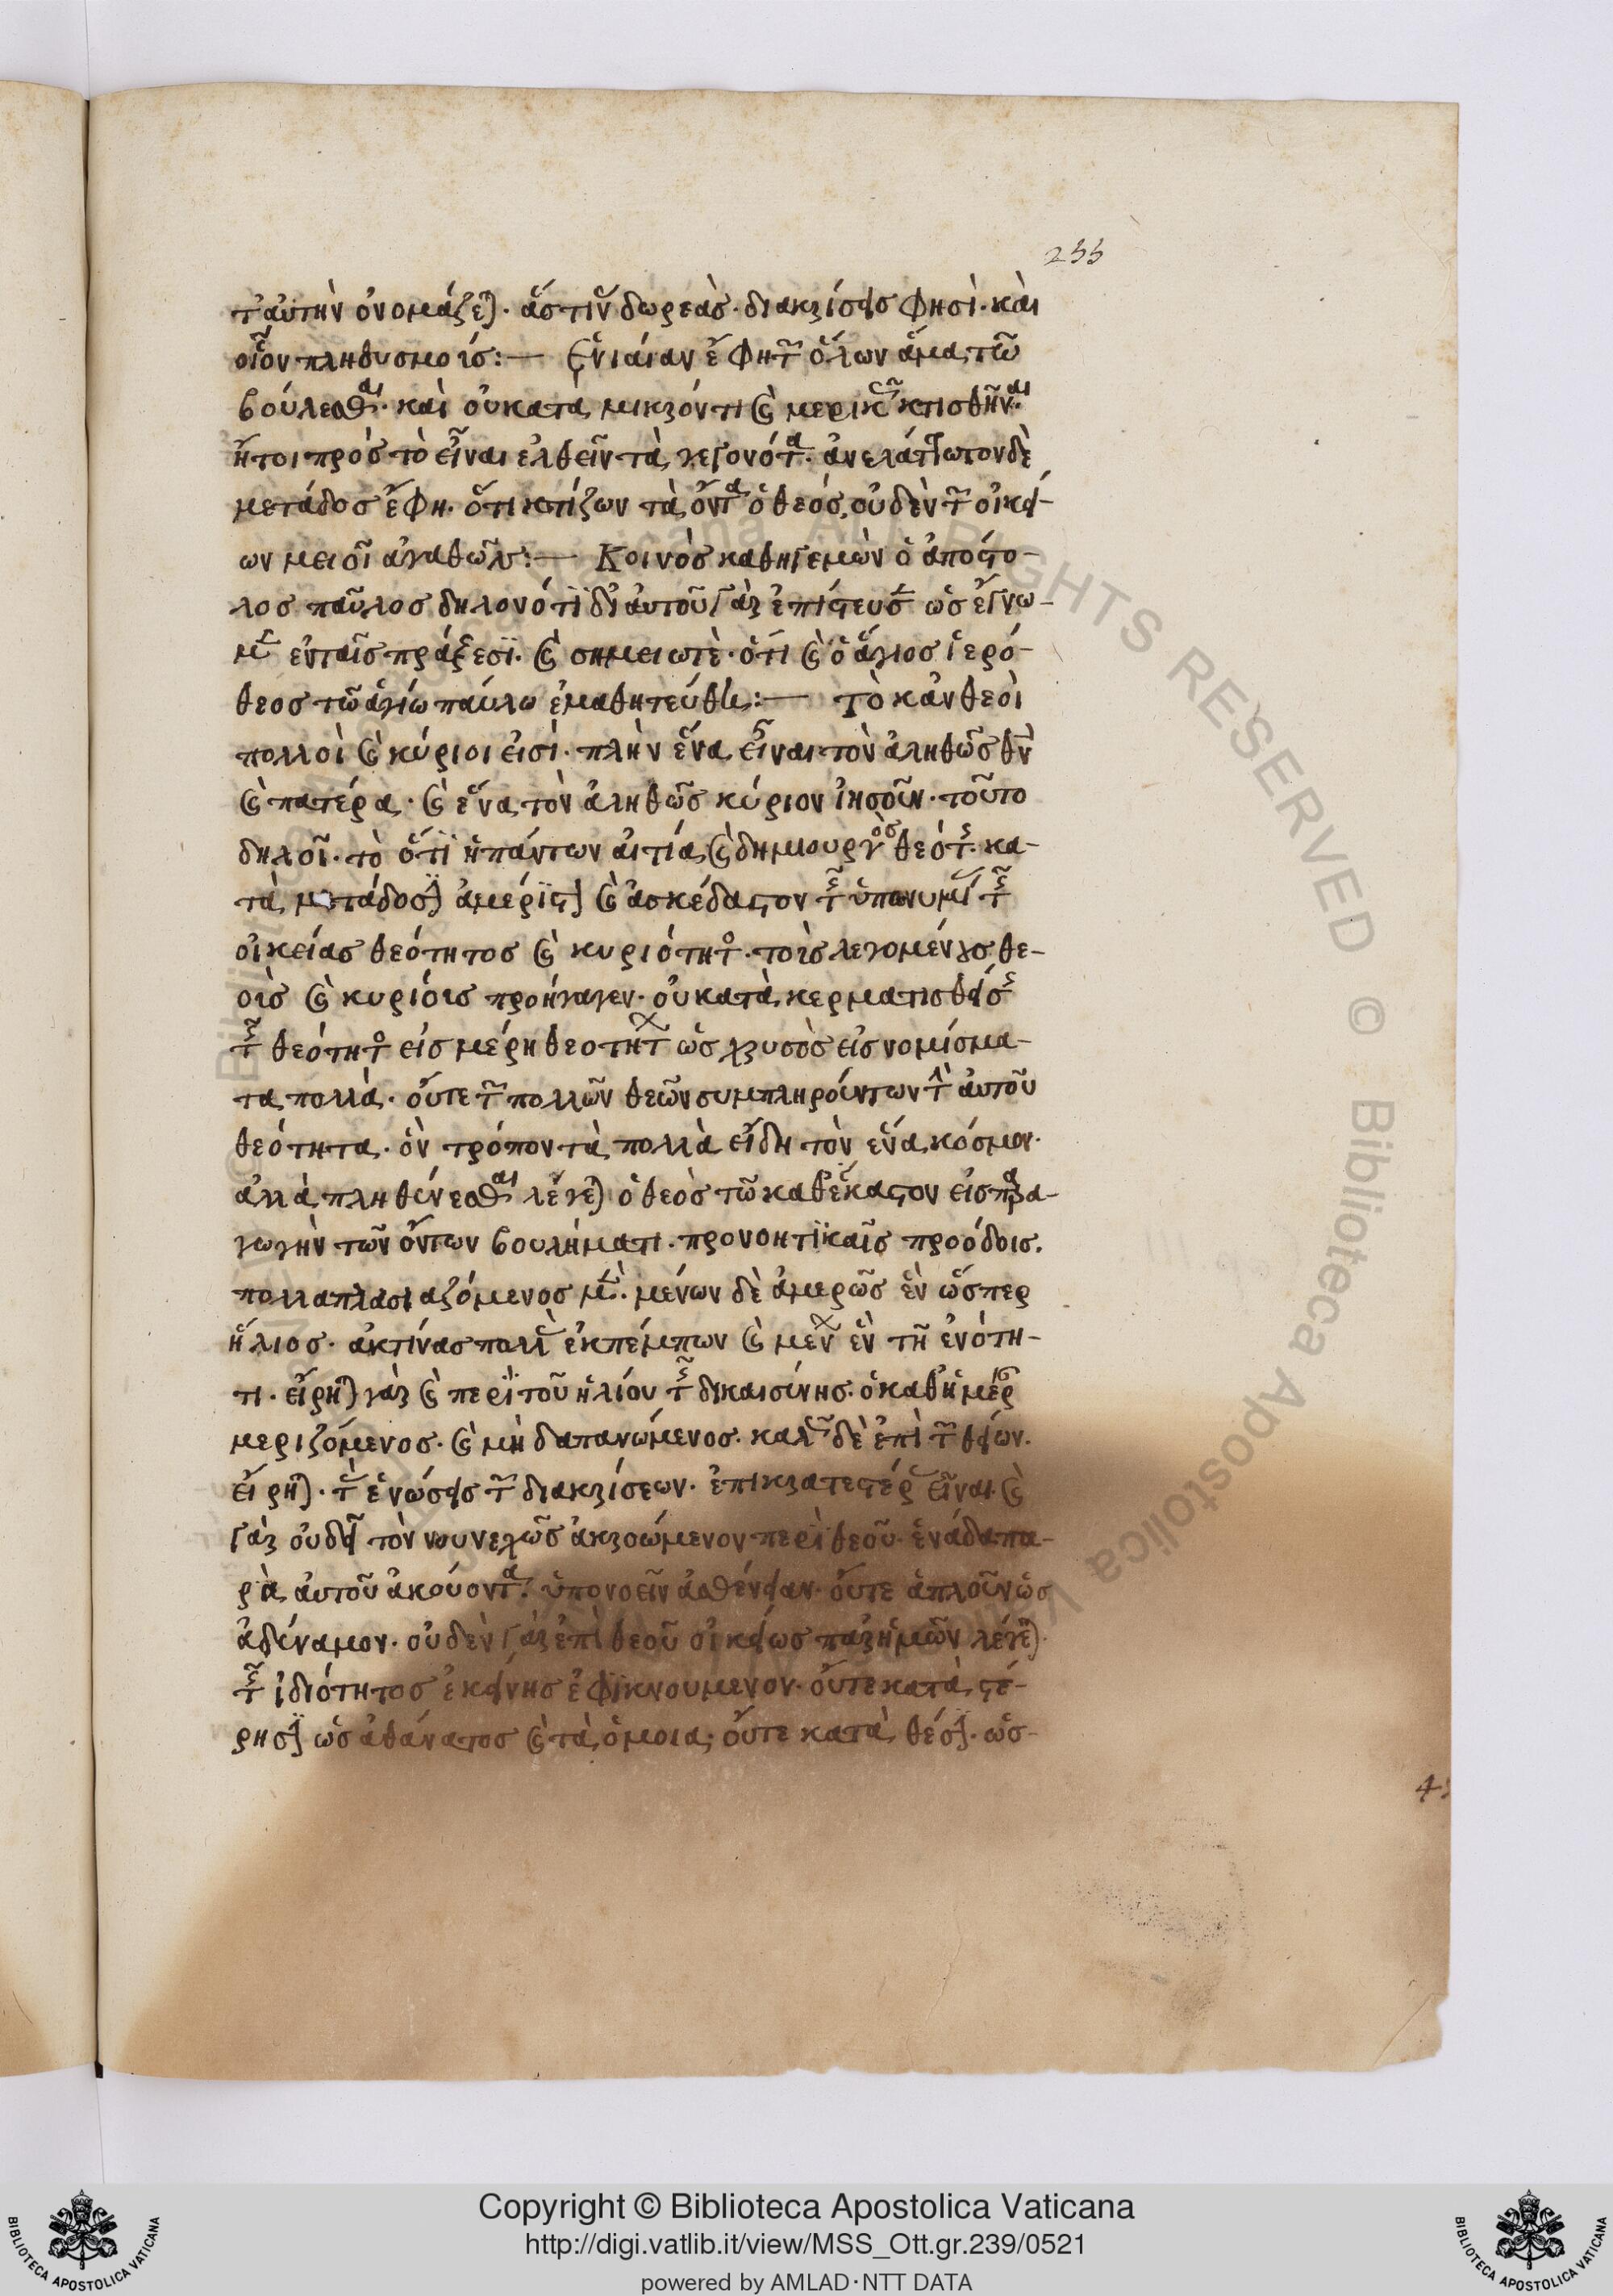 233
ταύτην ὀνομάζεται. ἅς τινας δωρεὰς. διακρίσεις φησὶ. καὶ
οἷον πληθυσμοὶς:— Ενιαίαν ἔφη τῶν ὅλων ἅμα τῶ
βούλεσθαι. καὶ οὐ κατα μικρόν τι καὶ μερικῶς κτισθῆναι.
ἤτοι πρὸς τὸ εἶναι ελθεῖν τὰ γεγονότα. ἀνελάττωτον δὲ
μετάδοσ ἔφη. ὅτι κτίζων τὰ ὄντα ὁ θεός, οὐδὲν τῶν οἰκεί-
ων μειοῖ ἀγαθῶν:— Κοινὸς καθηγεμὼν ὁ ἀπόστο-
λος παῦλος δηλονότι δι αὐτοῦ γὰρ ἐπίστευσ ὡς ἔγνω-
μεν ἐν ταῖς πράξεσι. καὶ σημειωτὲ. ὅτι καὶ ὁ ἅγιος ἱερό-
θεος τῶ ἁγίω παύλω ἐμαθητεύθη:— Τὸ κἀν θεοὶ
πολλοὶ καὶ κύριοι εἰσὶ. πλὴν ἕνα εἶναι τὸν ἀληθῶς θν
καὶ πατέρα. καὶ ἕνα τὸν ἀληθῶς κύριον ἰησοῦν. τοῦτο
δηλοῖ. τὸ ὅτι ἡ πάντων αἰτία καὶ δημιουργὸς θεότης. κα-
τὰ μετάδοσιν ἀμέριστον καὶ ἀσκέδαστον τῆς ὑπωνυμίας τῆς
οἰκείας θεότητος καὶ κυριότητος. τοὶς λεγομένοις θε-
οὶς καὶ κυρίοις προήγαγεν. οὐ κατὰ κερματισθείσης
τῆς θεότητος εἰς μέρη θεοτήτων ὡς χρυσὸς εἰς νομίσμα-
τα πολλὰ. οὔτε τῶν πολλῶν θεῶν συμπληρούντων τὴν αὐτοῦ
θεότητα. ὃν τρόπον τὰ πολλὰ εἴδη τὸν ἕνα κόσμον.
ἀλλὰ πληθύνεσθαι λέγεται ὁ θεὸς τῶ καθ ἕκαστον εἰς παρα-
γωγὴν τῶν ὄντων βουλήματι. προνοητικαῖς προόδοις.
πολλαπλασιαζόμενος μὲν. μένων δὲ ἀμερῶς ἓν ὥσπερ
ἥλιος. ἀκτίνας πολλὰς ἐκπέμπων καὶ μένων ἓν τῆ ἑνότη-
τι. εἴρηται γὰρ καὶ περὶ τοῦ ἡλίου τῆς δικαιοσύνης. ὁ καθ ἡμέραν
μεριζόμενος. καὶ μὴ δαπανώμενος. καλῶς δὲ ἐπὶ τῶν θείων.
εἴρηται. τὰς ἑνώσεις τῶν διακρίσεων. ἐπικρατεστέρας εἶναι. καὶ
γὰρ οὐδεὶ τὸν νουνεχῶς ἀκροώμενον περὶ θεοῦ. ἑνάδα πα-
ρὰ αὐτοῦ ἀκούοντα. ὑπονοεῖν ἀσθένειαν. οὔτε ἁπλοῦν ὡς
ἀδύναμον. οὐδὲν γὰρ ἐπὶ θεοῦ οἰκείως παρ ἡμῶν λέγεται.
τῆς ἰδιότητος ἐκείνης ἐφικνουμενον. οὔτε κατὰ στέ-
ρησιν ὡς ἀθάνατος καὶ τὰ ὅμοια. οὔτε κατὰ θέσιν. ὡς-
Copyright © Biblioteca Apostolica Vaticana
http://digi.vatlib.it/view/MSS_Ott.gr.239/0521
powered by AMLAD·NTT DATA